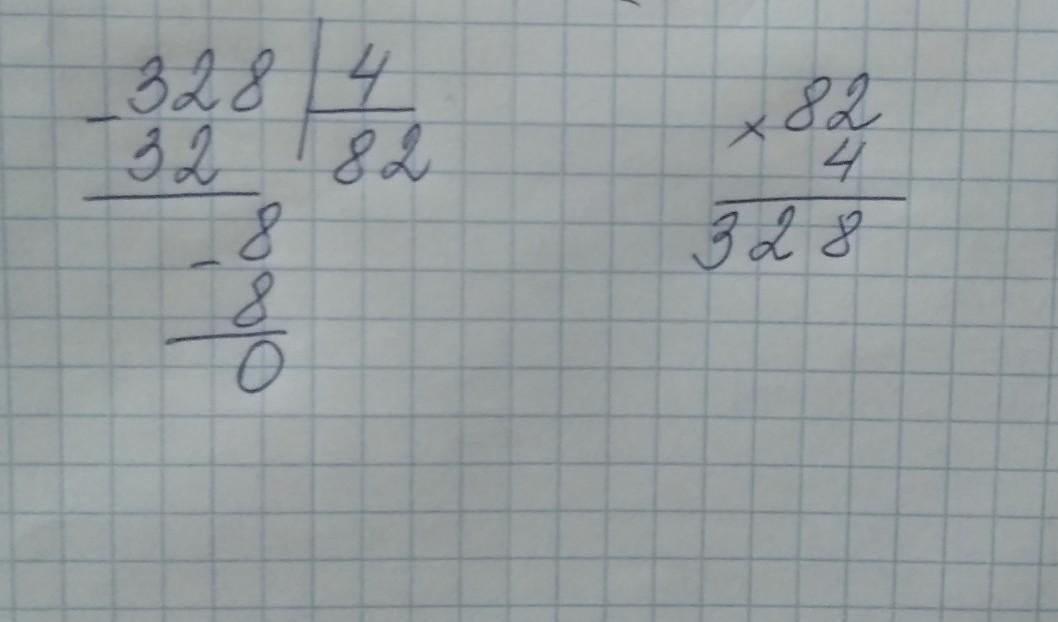 - 328 | 4
32 82
- 8
8
0
× 82
4
328